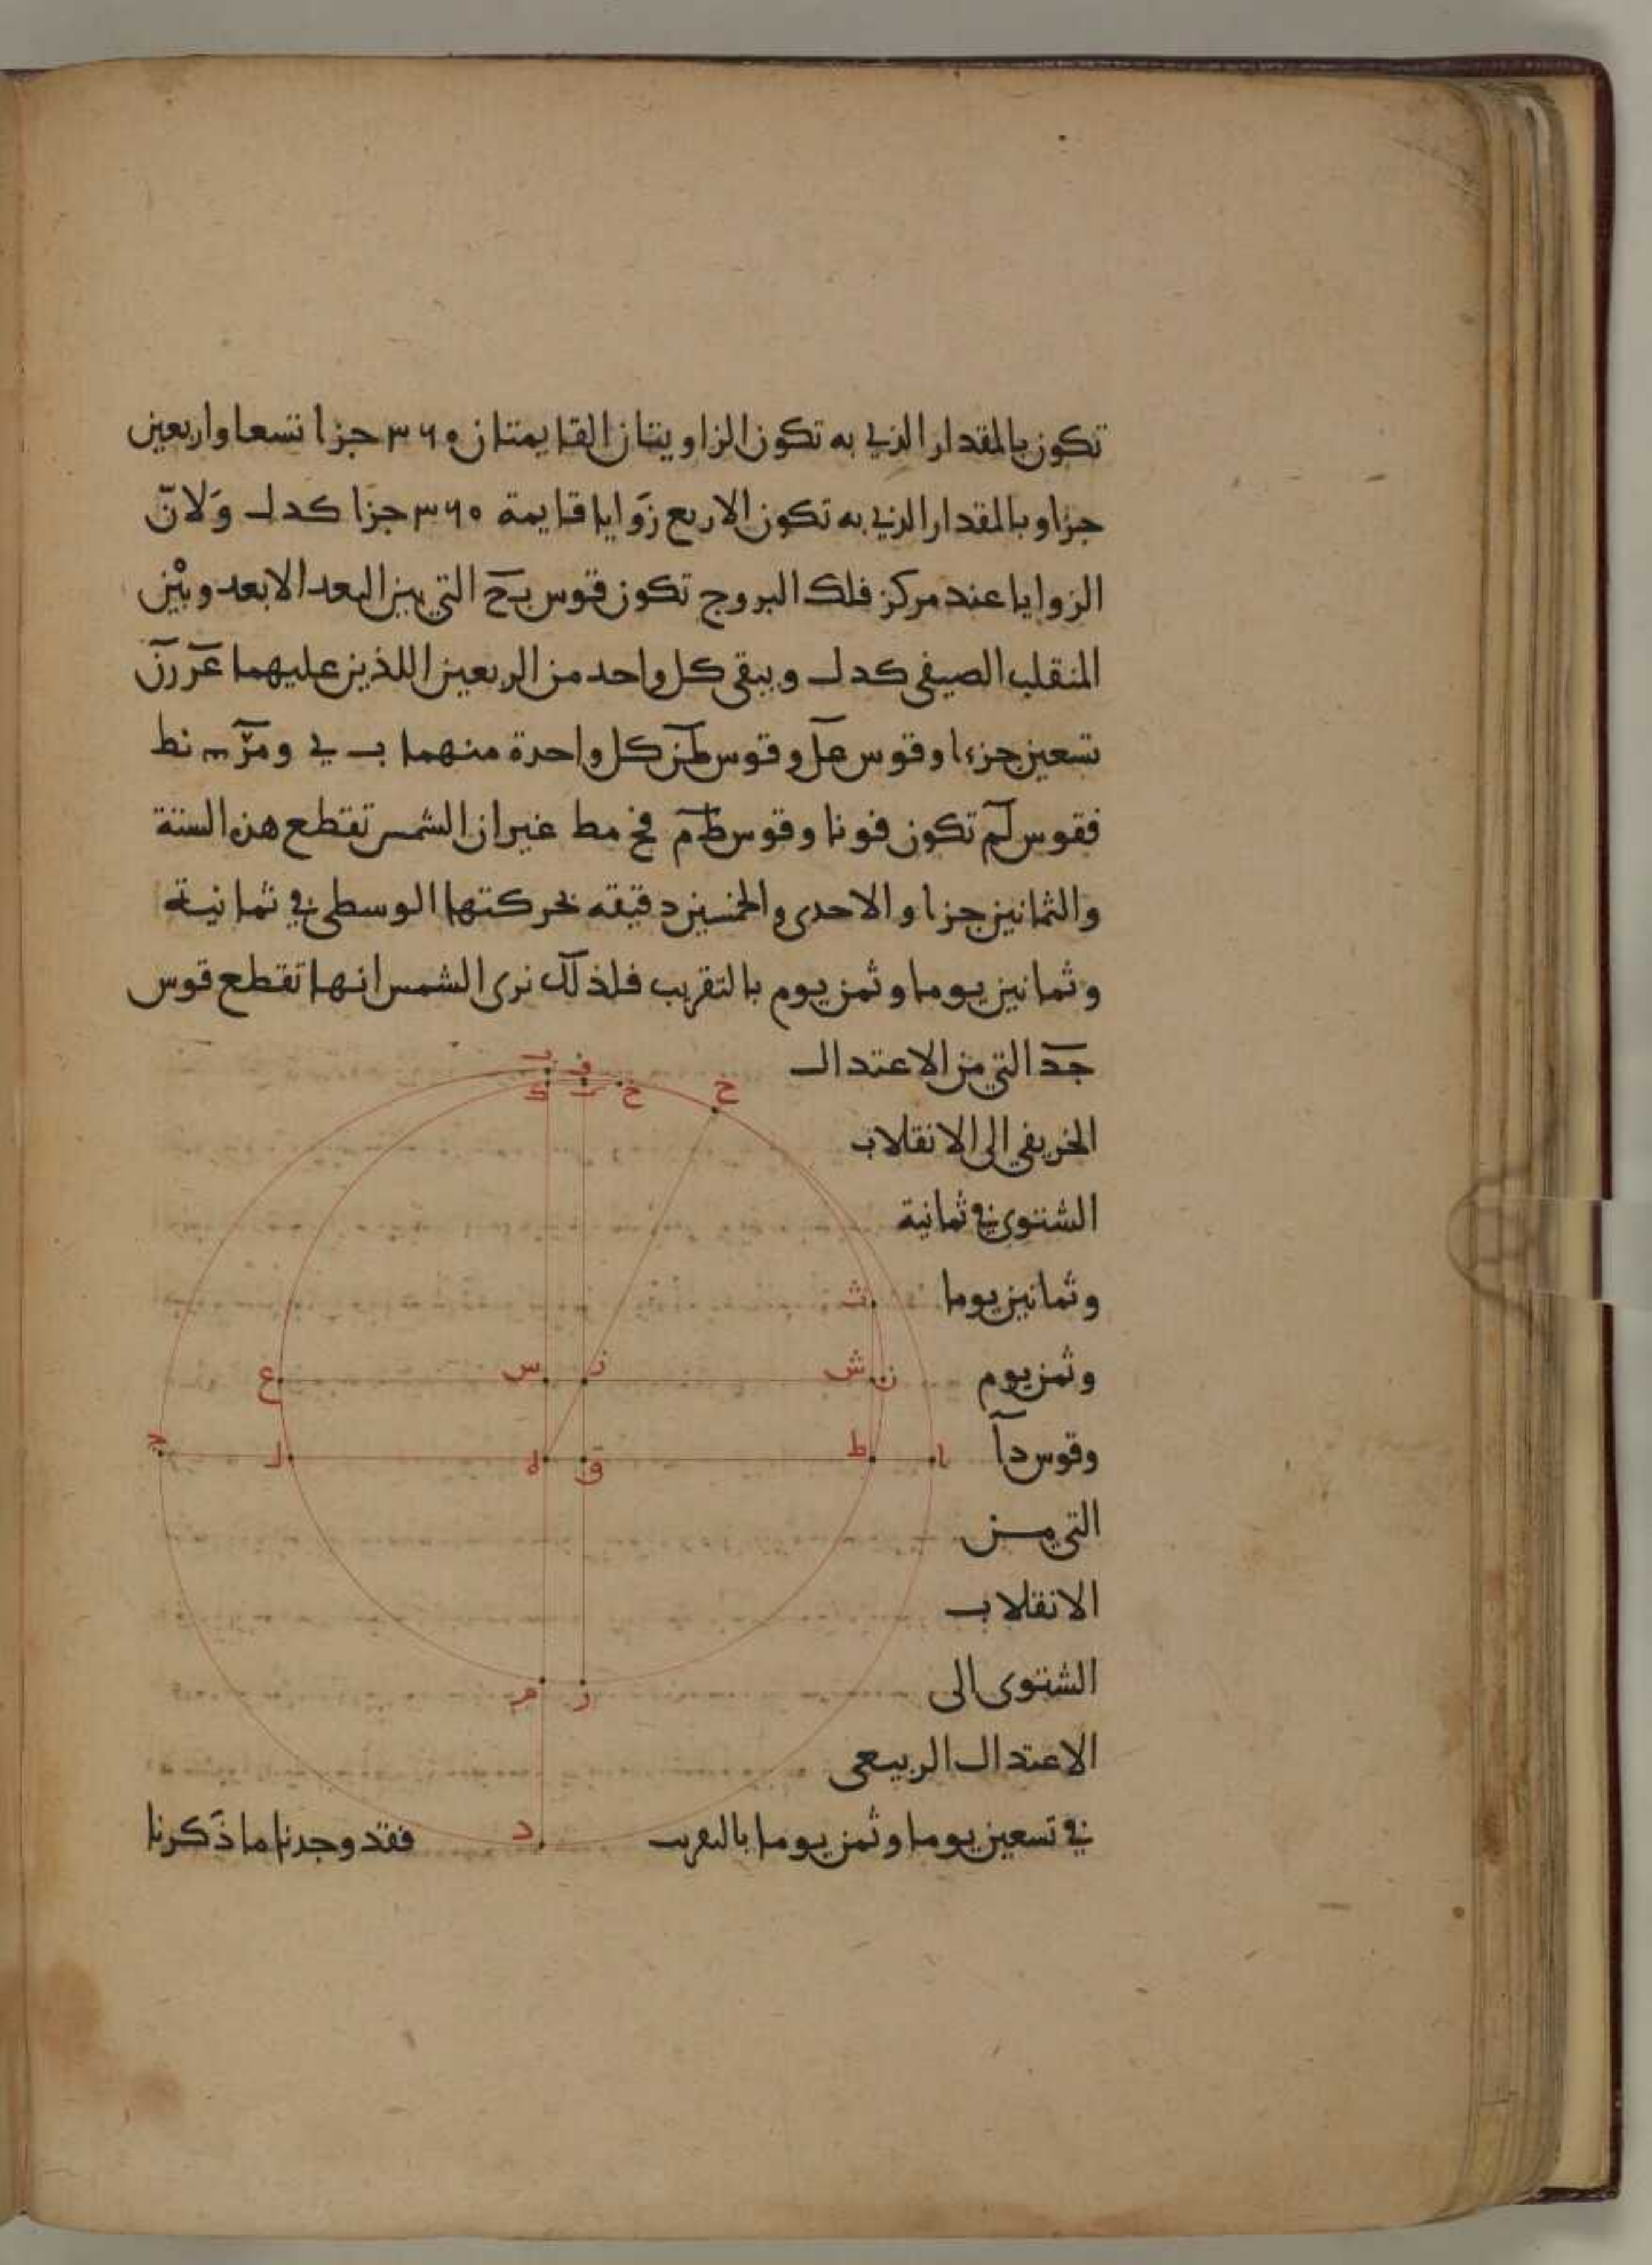 تكون بالمقدار الذي به تكون الزاويتان القايمتان ٣٦٠ جزا تسعا واربعين
جزاو بالمقدار الذي به تكون الاربع زوايا قايمة ٣٦٠ جزا كد ل ولان
الزوايا عند مركز فلك البروج تكون قوس بح التي بين البعد الابعد وبين
المنقلب الصيفي كد ل ويبقى كل واحد من الربعين اللذين عليهما
تسعين جزءا وقوس عل وقوس كل واحدة منهما ب ي نط
فقوس لم تكون فو نا وقوس طم فح مط غير ان الشمس تقطع هذه الستة
والثمانين جزا والاحدى والخمسين دقيقه بحركتها الوسطى في ثمانية
وثمانين يوما وثمن يوم بالتقريب فلذلك نرى الشمس انها تقطع قوس
جد التي من الاعتدال
الخريفي الى الانقلاب
الشتوى في ثمانية
وثمانين يوما
وثمن يوم
وقوس دا
التي من
الانقلاب
الشتوى الى
الاعتدال الربيعى
في تسعين يوما وثمن يوما بالتقريب فقد وجدنا ما ذكرنا
ب ف
ك خ ح
ث
ع س ز ش ن
ج ل ه ق ط ا
م ر
د